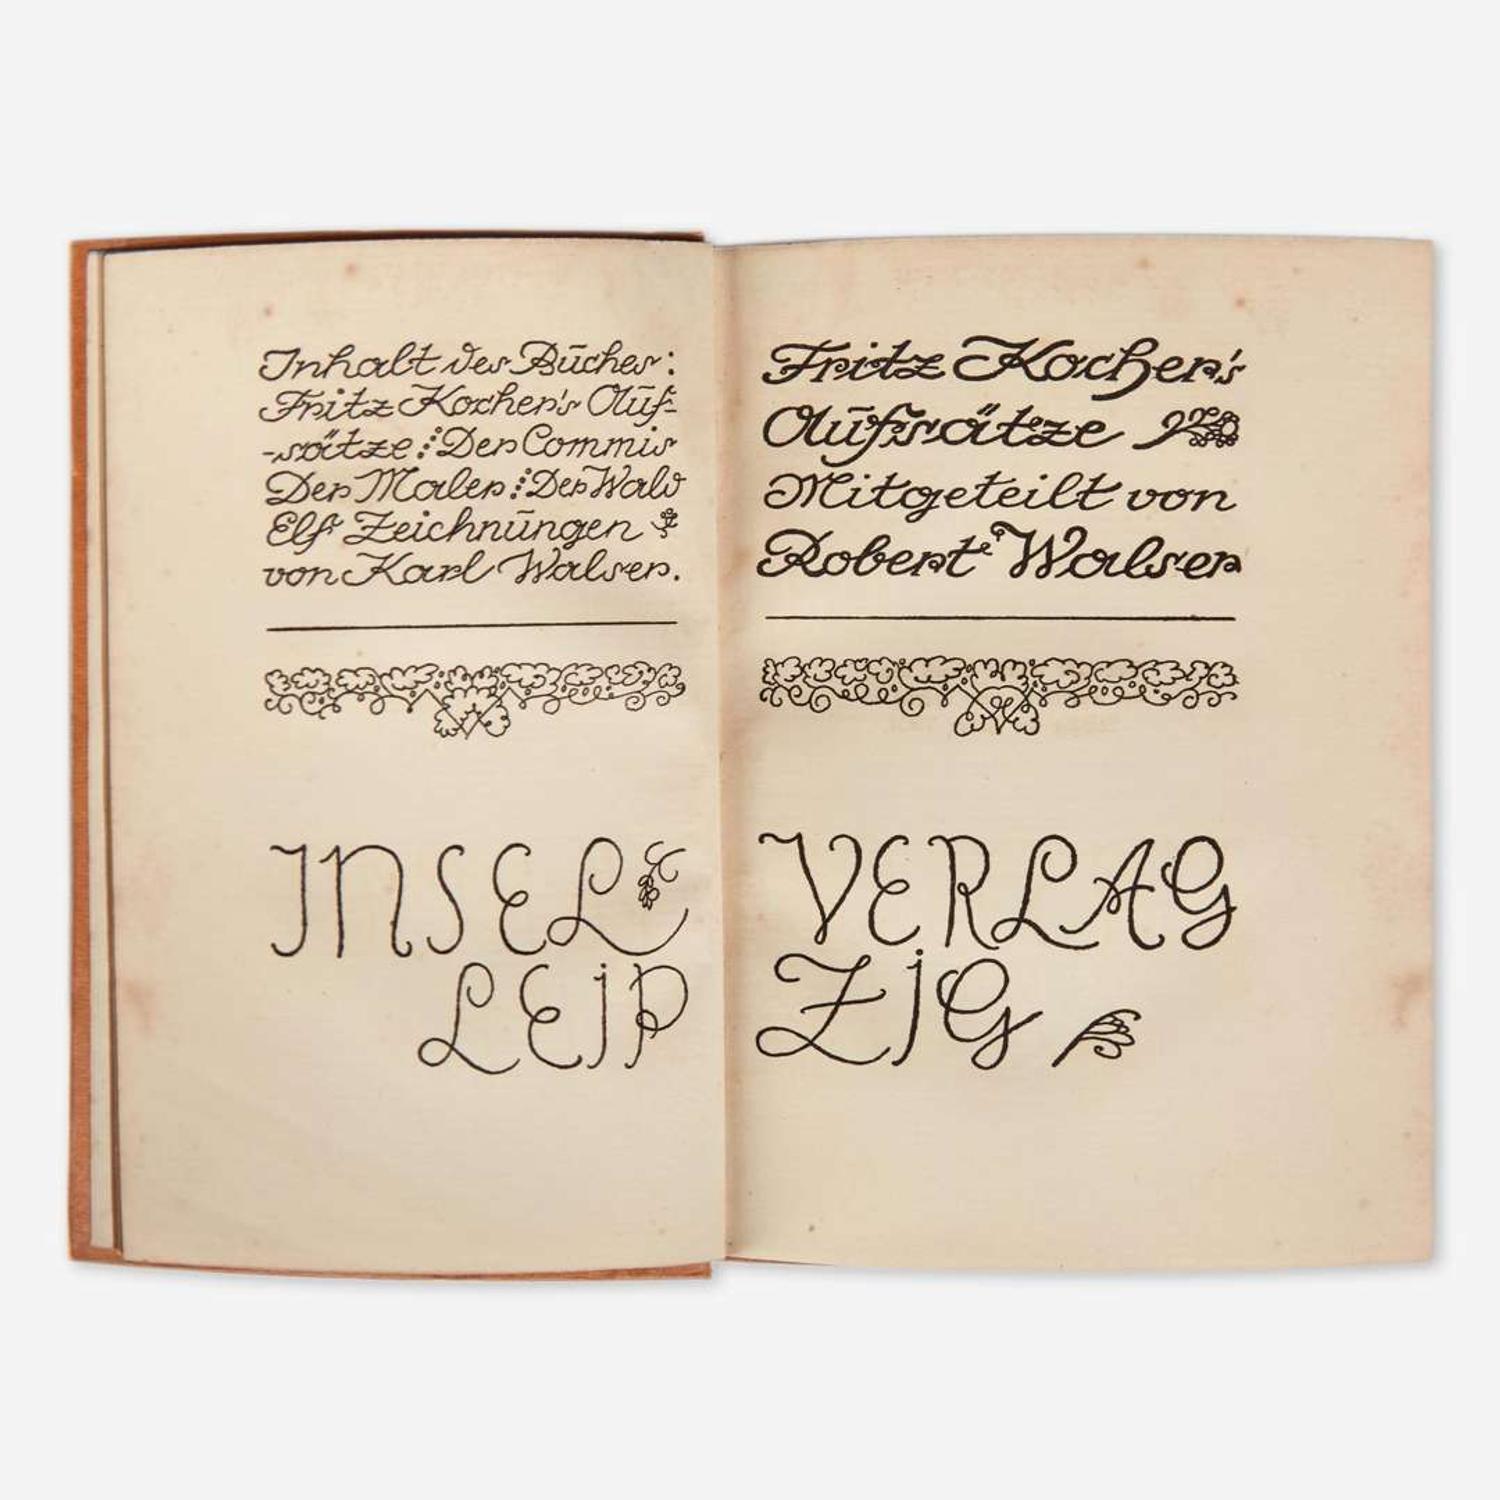 Inhalt des Būches:
Fritz Kocher's Aūf-
-sätze : Der Commis
Der Maler : Der Wald
Elf Zeichnūngen
von Karl Walser.
INSEL
LEIP
Fritz Kocher's
Aūfsätze
Mitgeteilt von
Robert Walser
VERLAG
ZIG